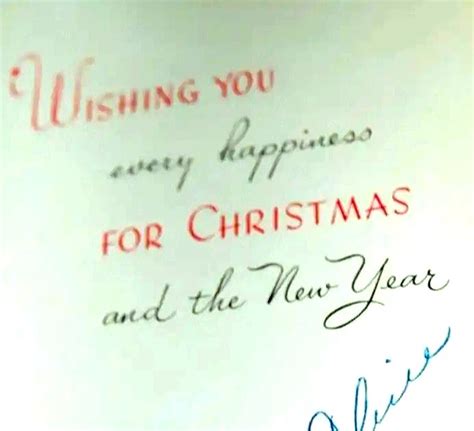 WISHING YOU
every happiness
FOR CHRISTMAS
and the New Year